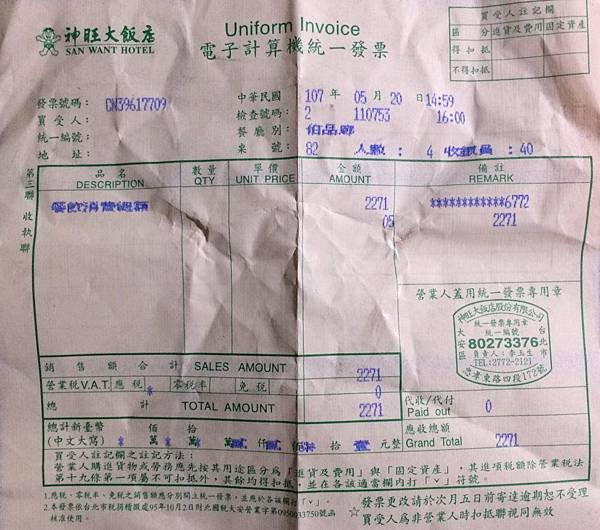 神旺大飯店
SAN WANT HOTEL
Uniform Invoice
電子計算機統一發票
買受人註記欄
區分 進貨及費用 固定資產
得扣抵
不得扣抵
發票號碼： CN39617709
中華民國 107 年 05 月 20 日 14:59
買受人：
檢查號碼： 2 110753 16:00
統一編號：
餐廳別： 伯品廊
地址：
桌號： 82 人數： 4 收銀員：40
第三聯 收執聯
品名 DESCRIPTION
數量 QTY
單價 UNIT PRICE
金額 AMOUNT
備註 REMARK
餐飲消費總額 2271 ************6772
05 2271
營業人蓋用統一發票專用章
神旺大飯店股份有限公司
統一發票專用章
大安區 統一編號 台北市
80273376
負責人：李玉生
TEL:2772-2121
忠孝東路四段172號
銷售額合計 SALES AMOUNT 2271
營業稅V.A.T. 應稅 * 零稅率 免稅 0
總計 TOTAL AMOUNT 2271
代收/代付 Paid out 0
總計新臺幣 (中文大寫) 佰 * 拾 * 萬 * 萬 貳 仟 貳 佰 柒 拾 壹 元整
應收總額 Grand Total 2271
買受人註記欄之註記方法：
營業人購進貨物或勞務應先按其用途區分為「進貨及費用」與「固定資產」，其進項稅額除營業稅法
第十九條第一項屬不可扣抵外，其餘均得扣抵，並在各該適當欄內打「ˇ」符號。
1.應稅、零稅率、免稅之銷售額應分別開立統一發票，並應於各該欄打「ˇ」。
2.本發票依台北市稅捐稽徵處95年10月2日財北國稅大安營業字第0950033750號函
核准使用。
☆發票更改請於次月五日前寄達逾期恕不受理
買受人為非營業人時扣抵聯視同無效